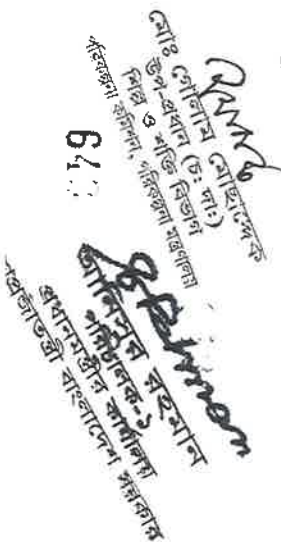 মোঃ গোলাম মোছাদ্দেক
উপ-প্রধান (চঃ দাঃ)
শিল্প ও শক্তি বিভাগ
পরিকল্পনা কমিশন, পরিকল্পনা মন্ত্রণালয়
আনিসুর রহমান
পরিচালক-১
প্রধানমন্ত্রীর কার্যালয়
গণপ্রজাতন্ত্রী বাংলাদেশ সরকার